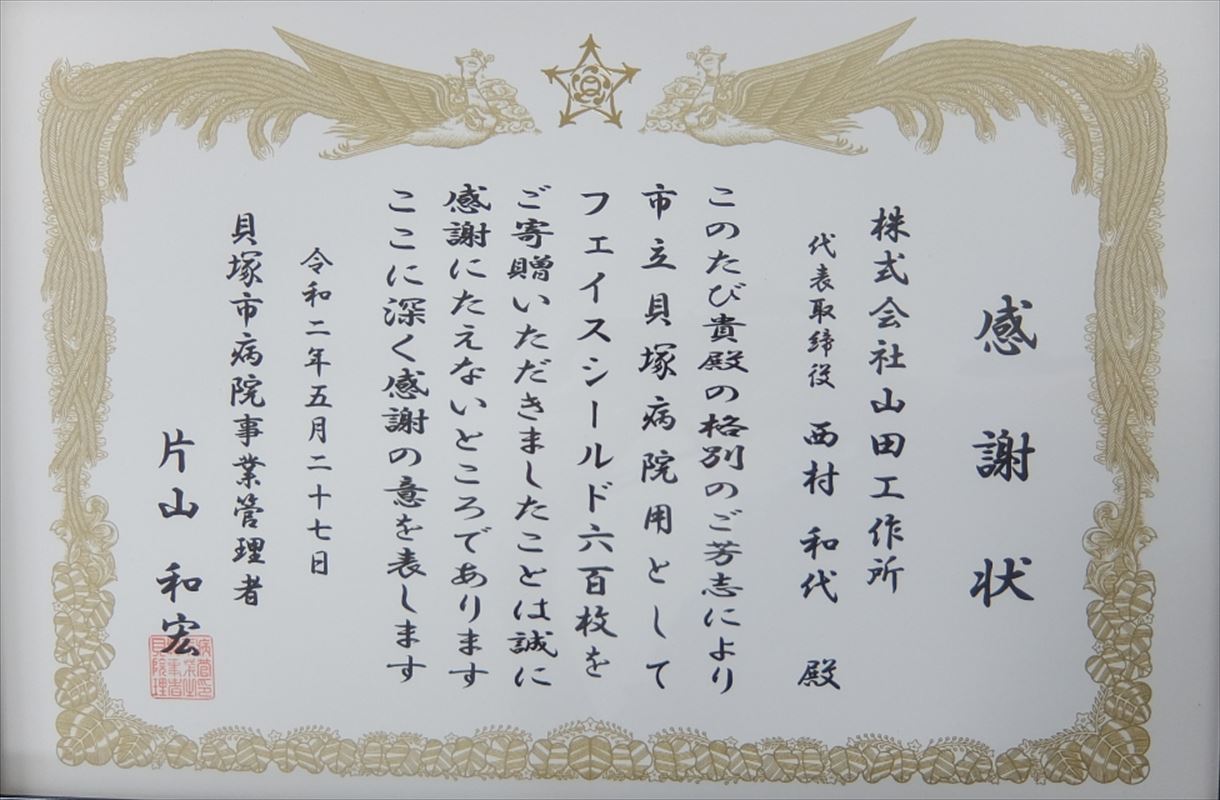 感謝状
株式会社山田工作所
代表取締役 西村 和代 殿
このたび貴殿の格別のご芳志により
市立貝塚病院用として
フェイスシールド六百枚を
ご寄贈いただきましたことは誠に
感謝にたえないところであります
ここに深く感謝の意を表します
令和二年五月二十七日
貝塚市病院事業管理者
片山 和宏